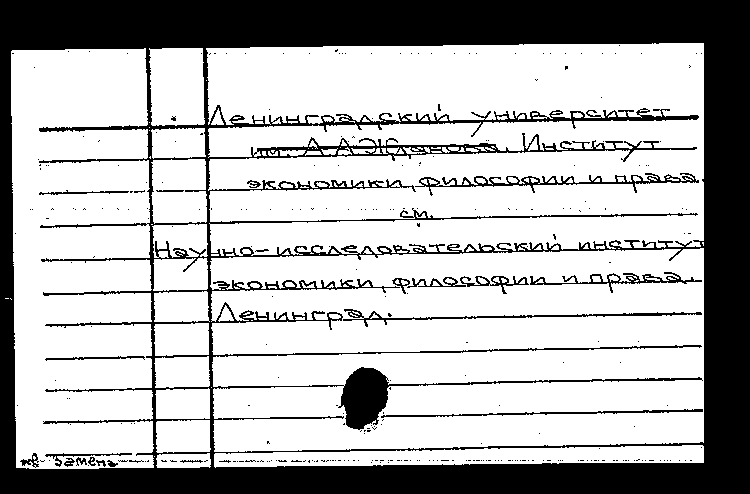 Ленинградский университет
им. А.А.Жданова. Институт
экономики, философии и права.
см.
Научно-исследовательский институт
экономики, философии и права.
Ленинград.
замена